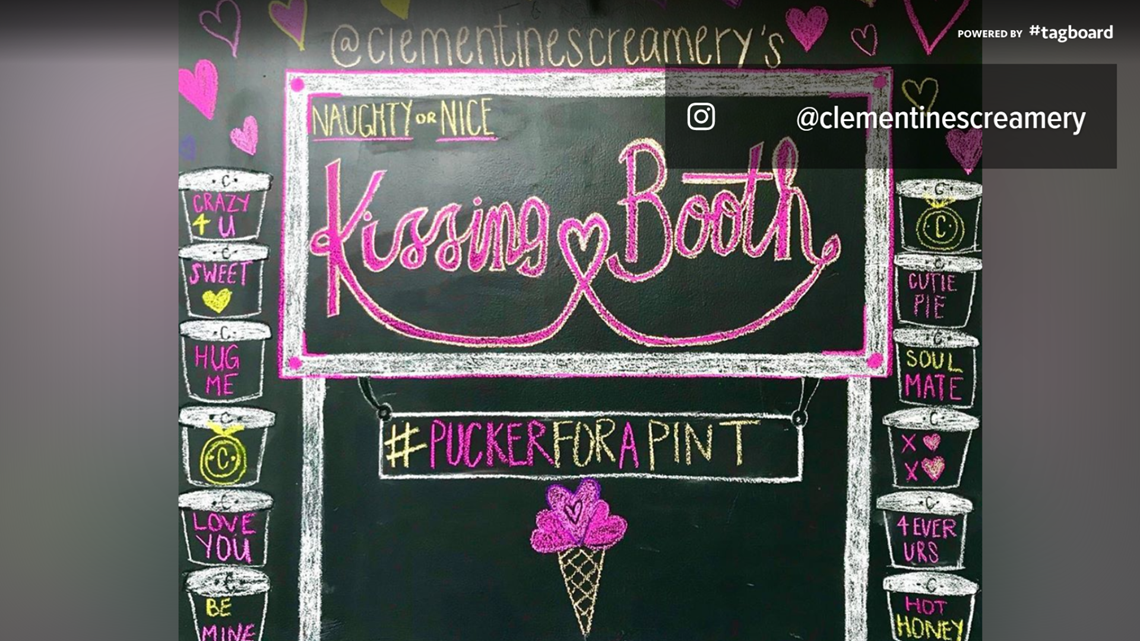 POWERED BY #tagboard
@clementinescreamery's
@clementinescreamery
NAUGHTY OR NICE
Kissing Booth
#PUCKERFORAPINT
C
CRAZY
4 U
C
SWEET
C
HUG
ME
C
C
C
LOVE
YOU
C
BE
MINE
C
C
C
CUTIE
PIE
C
SOUL
MATE
C
X
X
C
4EVER
URS
C
HOT
HONEY